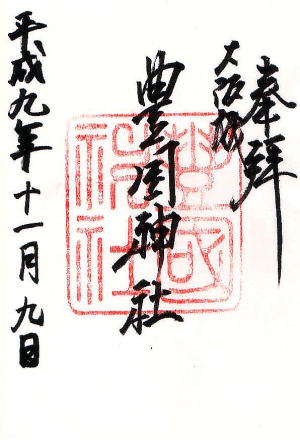 奉拝
大阪城
豊国神社
平成九年十一月九日
豊國神社